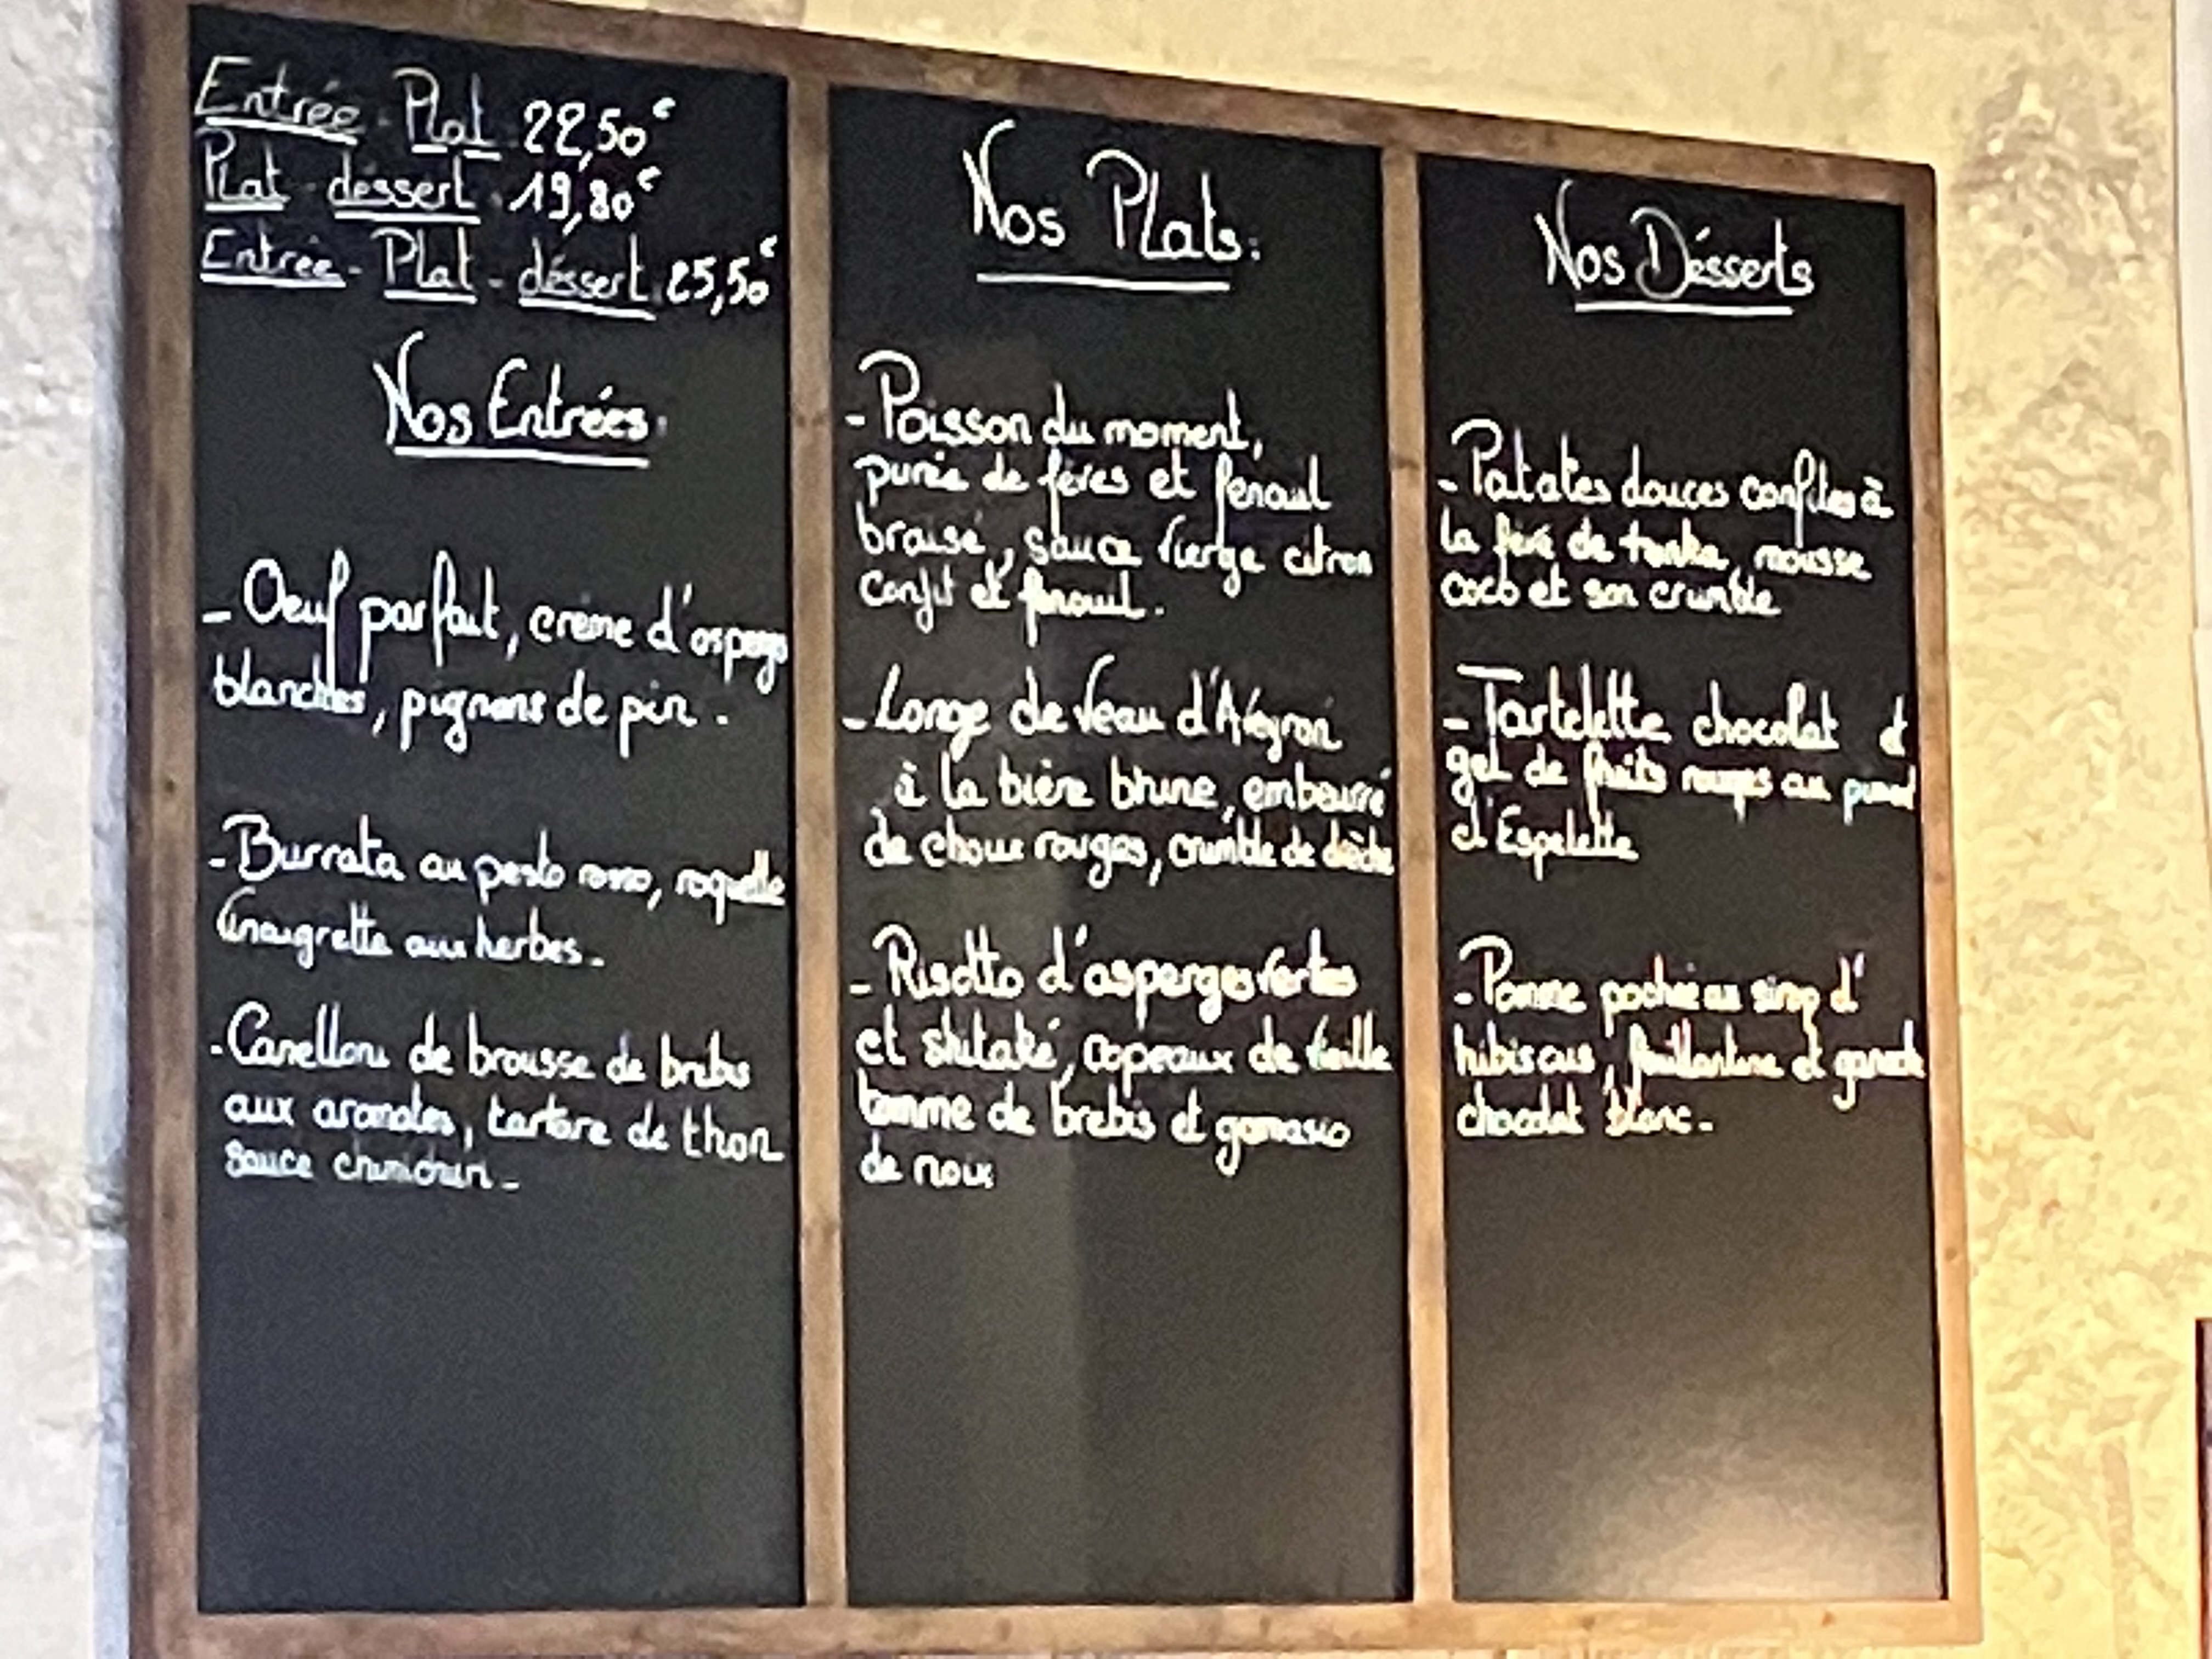 Entrée - Plat 22,50€
Plat - déssert - 19,80€
Entrée - Plat - déssert 25,50€
Nos Entrées:
- Oeuf parfait, crème d'asperges
blanches, pignons de pin.
- Burrata au pesto rosso, roquette
Vinaigrette aux herbes.
- Canelloni de brousse de brebis
aux aromates, tartare de thon
sauce chimichurri.
Nos Plats:
- Poisson du moment,
purée de fèves et fenouil
braisé, sauce Vierge citron
confit et fenouil.
- Longe de Veau d'Aveyron
à la bière brune, embeurré
de choux rouges, crumble de drèche
- Risotto d'asperges vertes
et shitaké, copeaux de vieille
tomme de brebis et gomasio
de noix
Nos Désserts
- Patates douces confites à
la fève de tonka, mousse
coco et son crumble
- Tartelette chocolat et
gel de fruits rouges au piment
d'Espelette
- Pomme pochée au sirop d'
hibiscus, feuillantine et ganache
chocolat blanc.